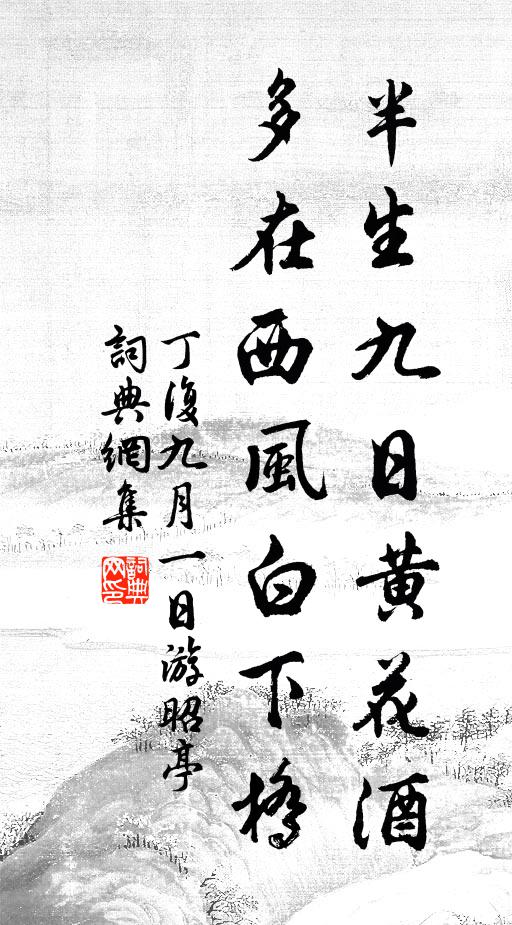 半生九日黄花酒
多在西風白下橋
丁復九月一日游昭亭
詞典網集
詞典網印